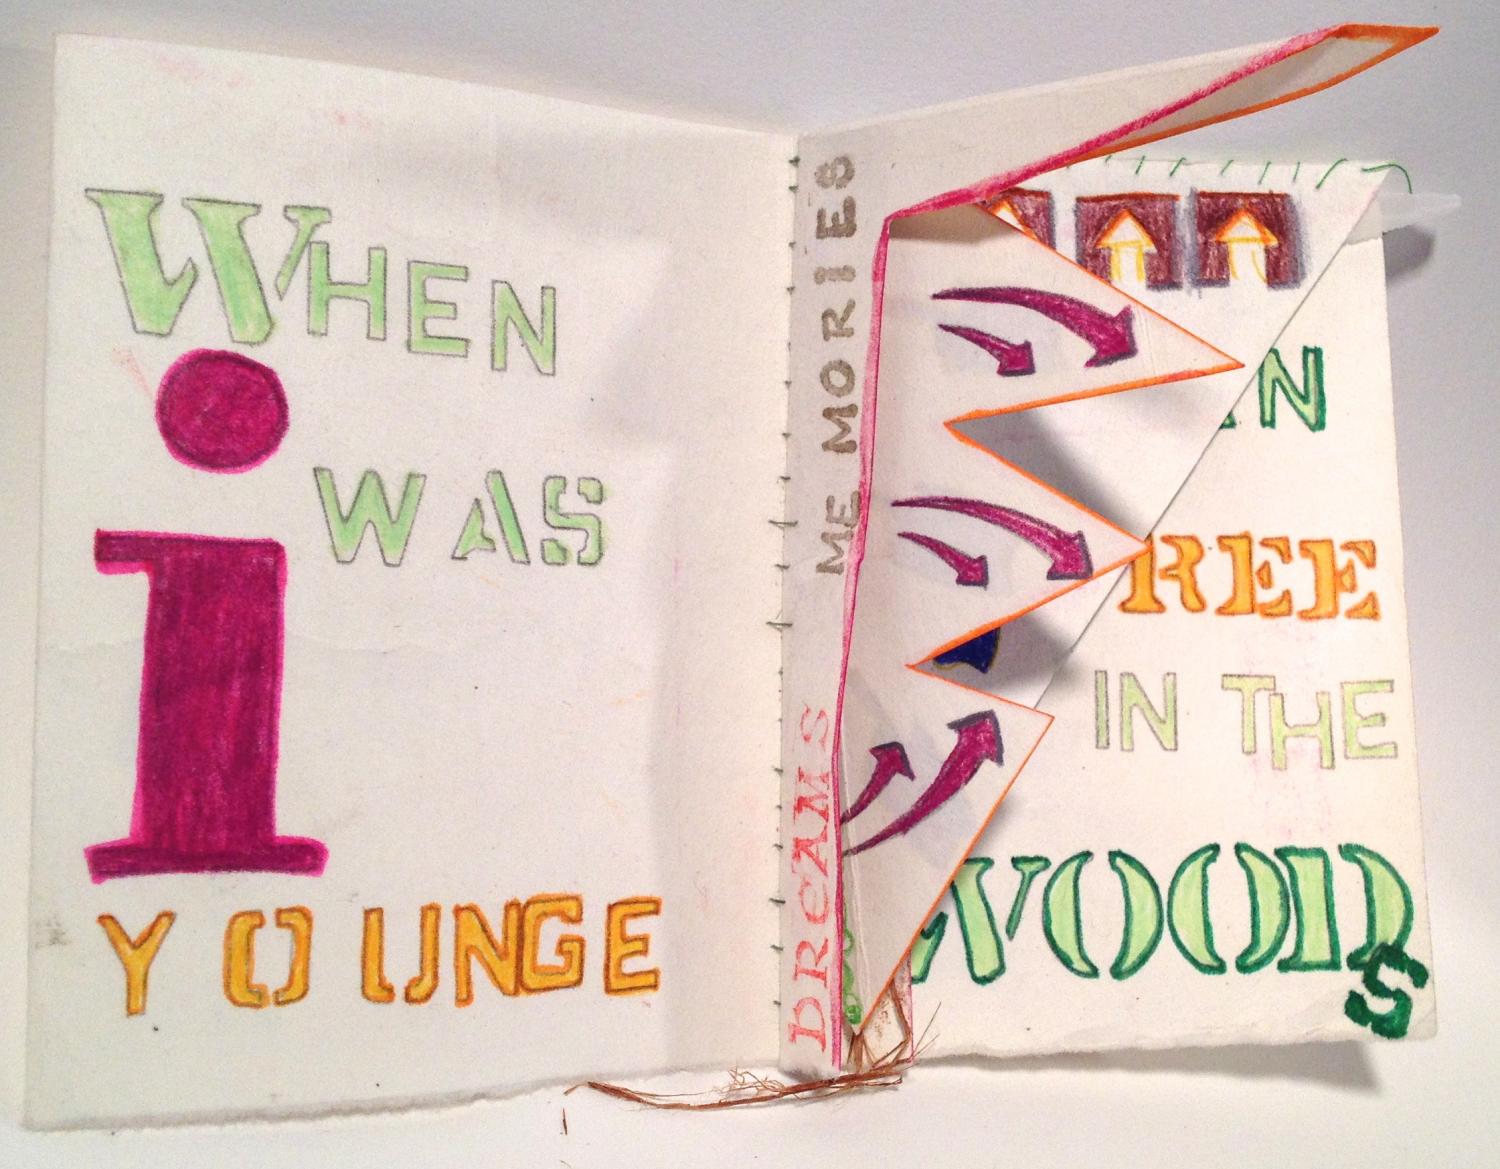 WHEN
i WAS
YOUNGE
MEMORiES
DReAMS
N
REE
IN THE
WOODS